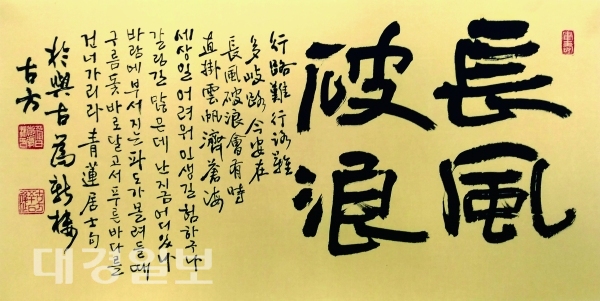 長風
破浪
行路難行路難
多岐路今安在
長風破浪會有時
直掛雲帆濟蒼海
세상일 어려워 인생길 험하구나
갈림길 많은데 난 지금 어디 있나
바람에 부서지는 파도가 몰려들 때
구름돛 바로 달고서 푸른 바다를
건너가리라 青蓮居士句
於與古為新樓
古方
대경일보